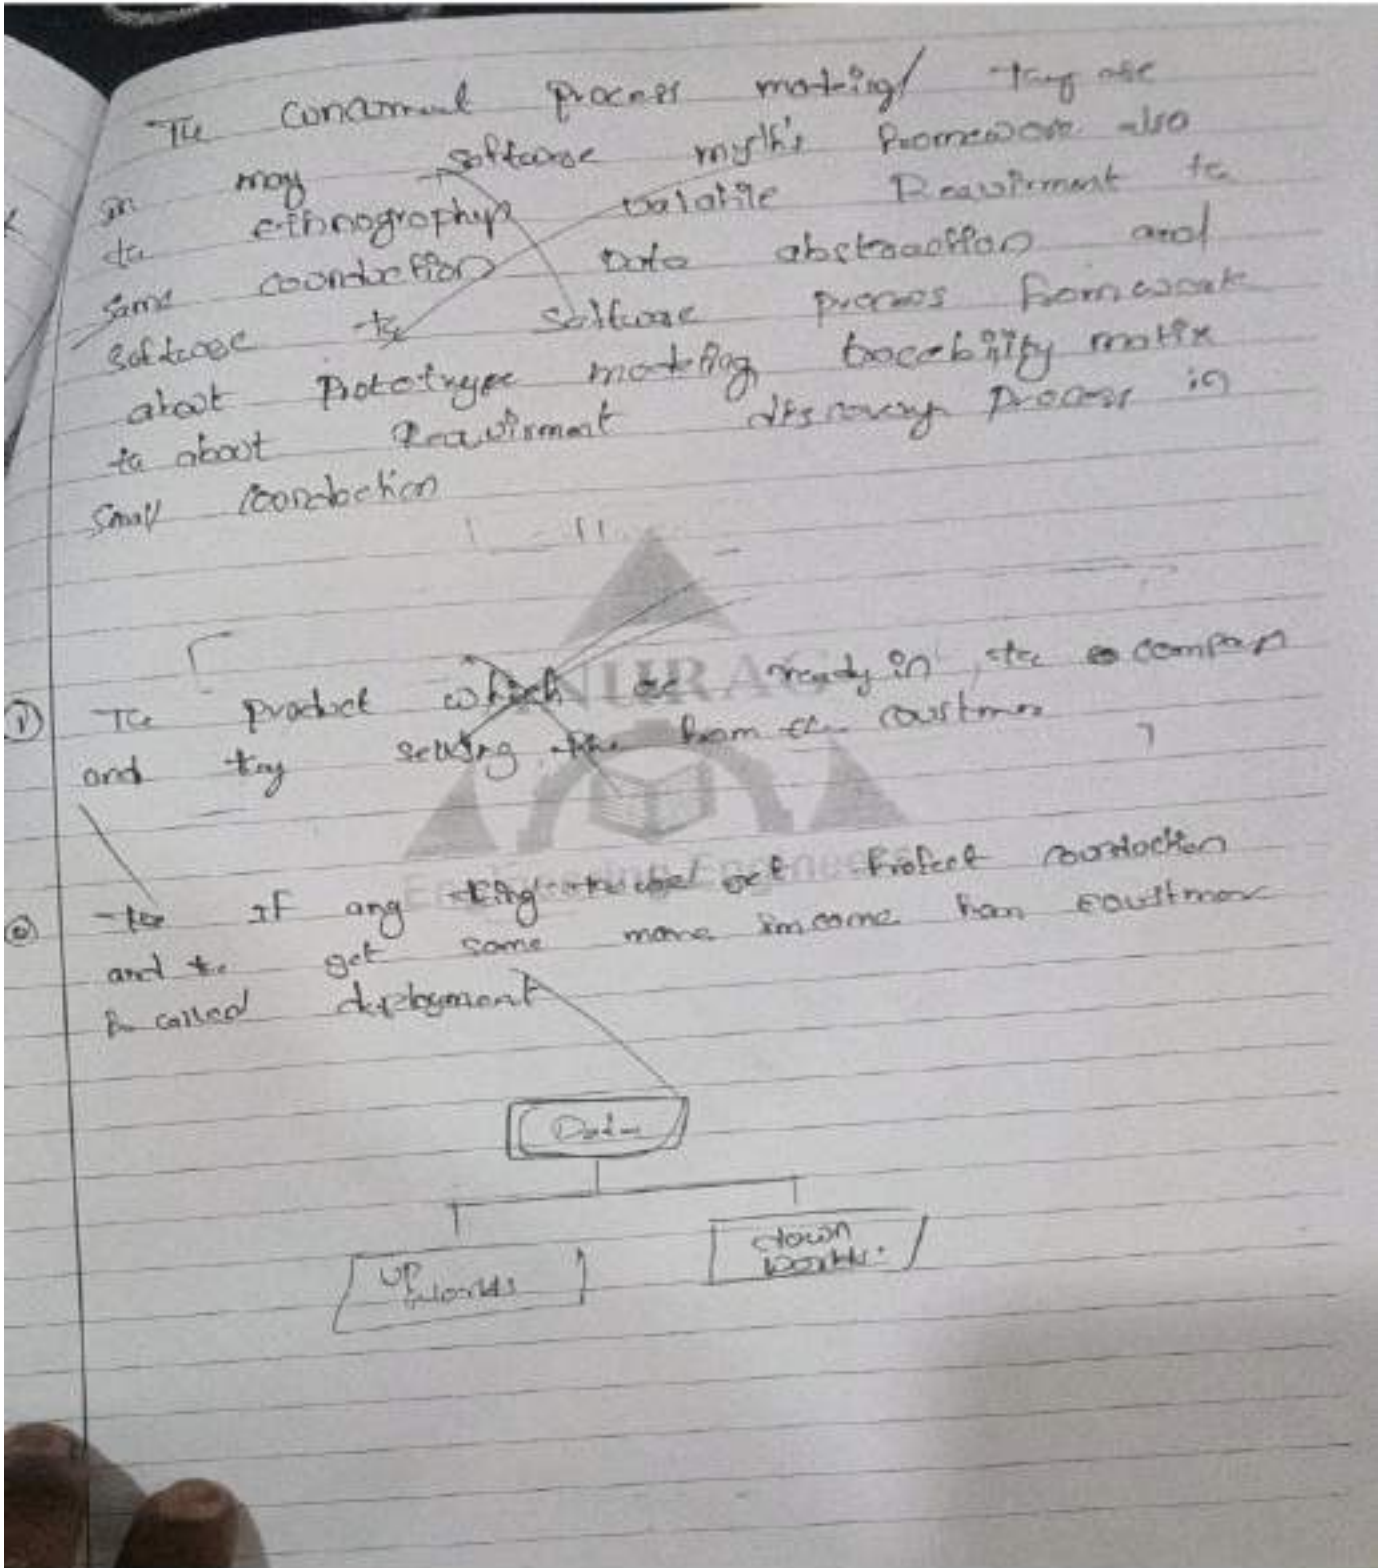 The concurrent process modeling they are
in may software myth's Framework also
to ethnography volatile Reawirment to
same coonduction Data abstraction and
software to software process fromework
about Prototryee modeling tracebility matix
to about Reawirment discovery process in
small coonduction
① The product which ready in the compan
and try selling the from the coustmer
② If any thing Profect coonduction
and to get some more income from coustmer
is called deployment
Data
UP
down
ANURAG
Engineering Engineers